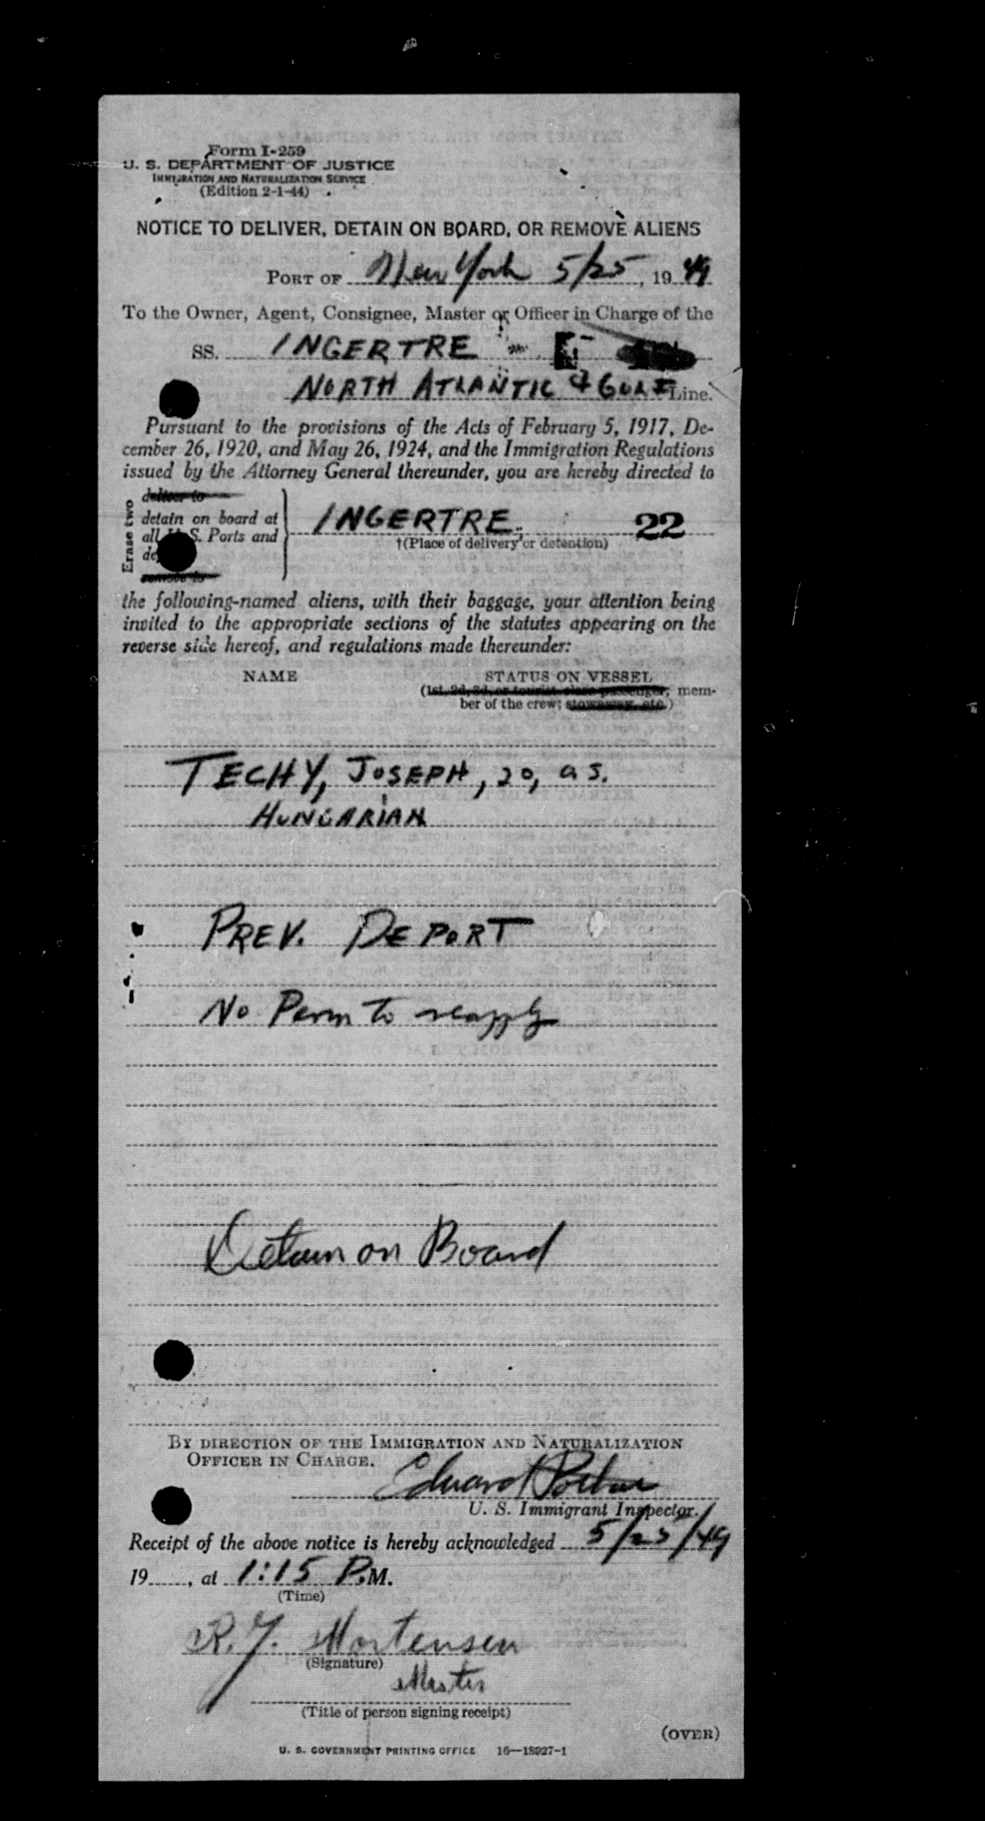 Form I-259
U. S. DEPARTMENT OF JUSTICE
IMMIGRATION AND NATURALIZATION SERVICE
(Edition 2-1-44)
NOTICE TO DELIVER, DETAIN ON BOARD, OR REMOVE ALIENS
PORT OF New York 5/25, 19 49
To the Owner, Agent, Consignee, Master or Officer in Charge of the
SS. INGERTRE
NORTH ATLANTIC & GULF Line.
Pursuant to the provisions of the Acts of February 5, 1917, De-
cember 26, 1920, and May 26, 1924, and the Immigration Regulations
issued by the Attorney General thereunder, you are hereby directed to
Erase two
deliver to
detain on board at
all U. S. Ports and
de
remove to
INGERTRE, 22
†(Place of delivery or detention)
the following-named aliens, with their baggage, your attention being
invited to the appropriate sections of the statutes appearing on the
reverse side hereof, and regulations made thereunder:
NAME STATUS ON VESSEL
(1st, 2d, 3d, or tourist class passenger; mem-
ber of the crew; stowaway, etc.)
TECHY, JOSEPH, 20, a s.
HUNGARIAN
PREV. DEPORT
No Perm to reapply
Detain on Board
BY DIRECTION OF THE IMMIGRATION AND NATURALIZATION
OFFICER IN CHARGE.
Edward
U. S. Immigrant Inspector.
Receipt of the above notice is hereby acknowledged 5/25/49
19......, at 1:15 P.M.
(Time)
R. J. Mortensen
(Signature)
Master
(Title of person signing receipt)
(OVER)
U. S. GOVERNMENT PRINTING OFFICE 16—18927-1